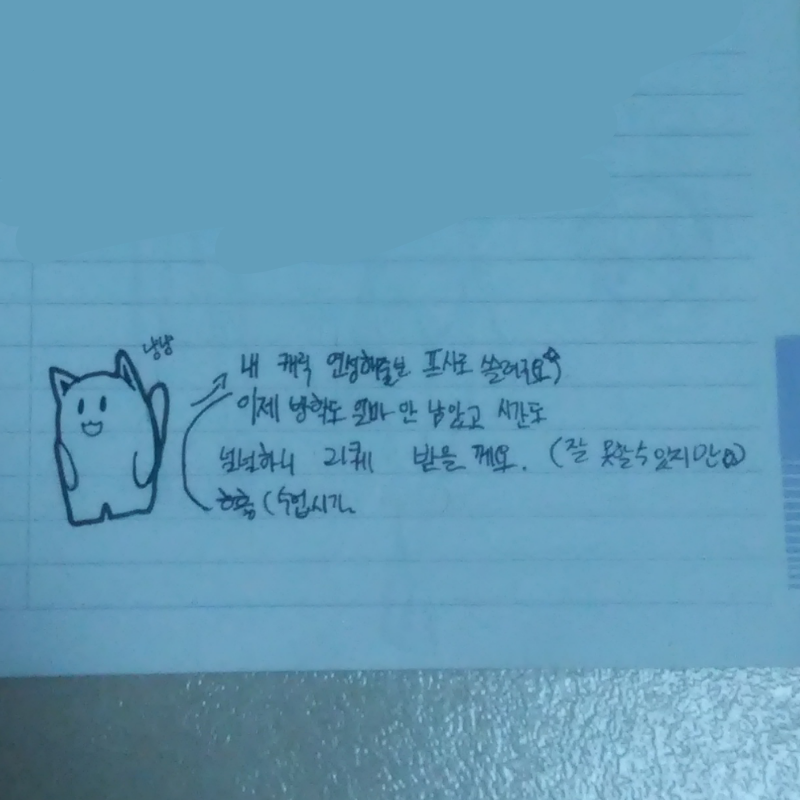 냥냥
내 캐릭 연성해줄분 프사로 쓸려구요
이제 방학도 얼마 안 남았고 시간도
널널하니 리퀘 받을 께요. (잘 못할수 있지만
흐흠 (수업시간